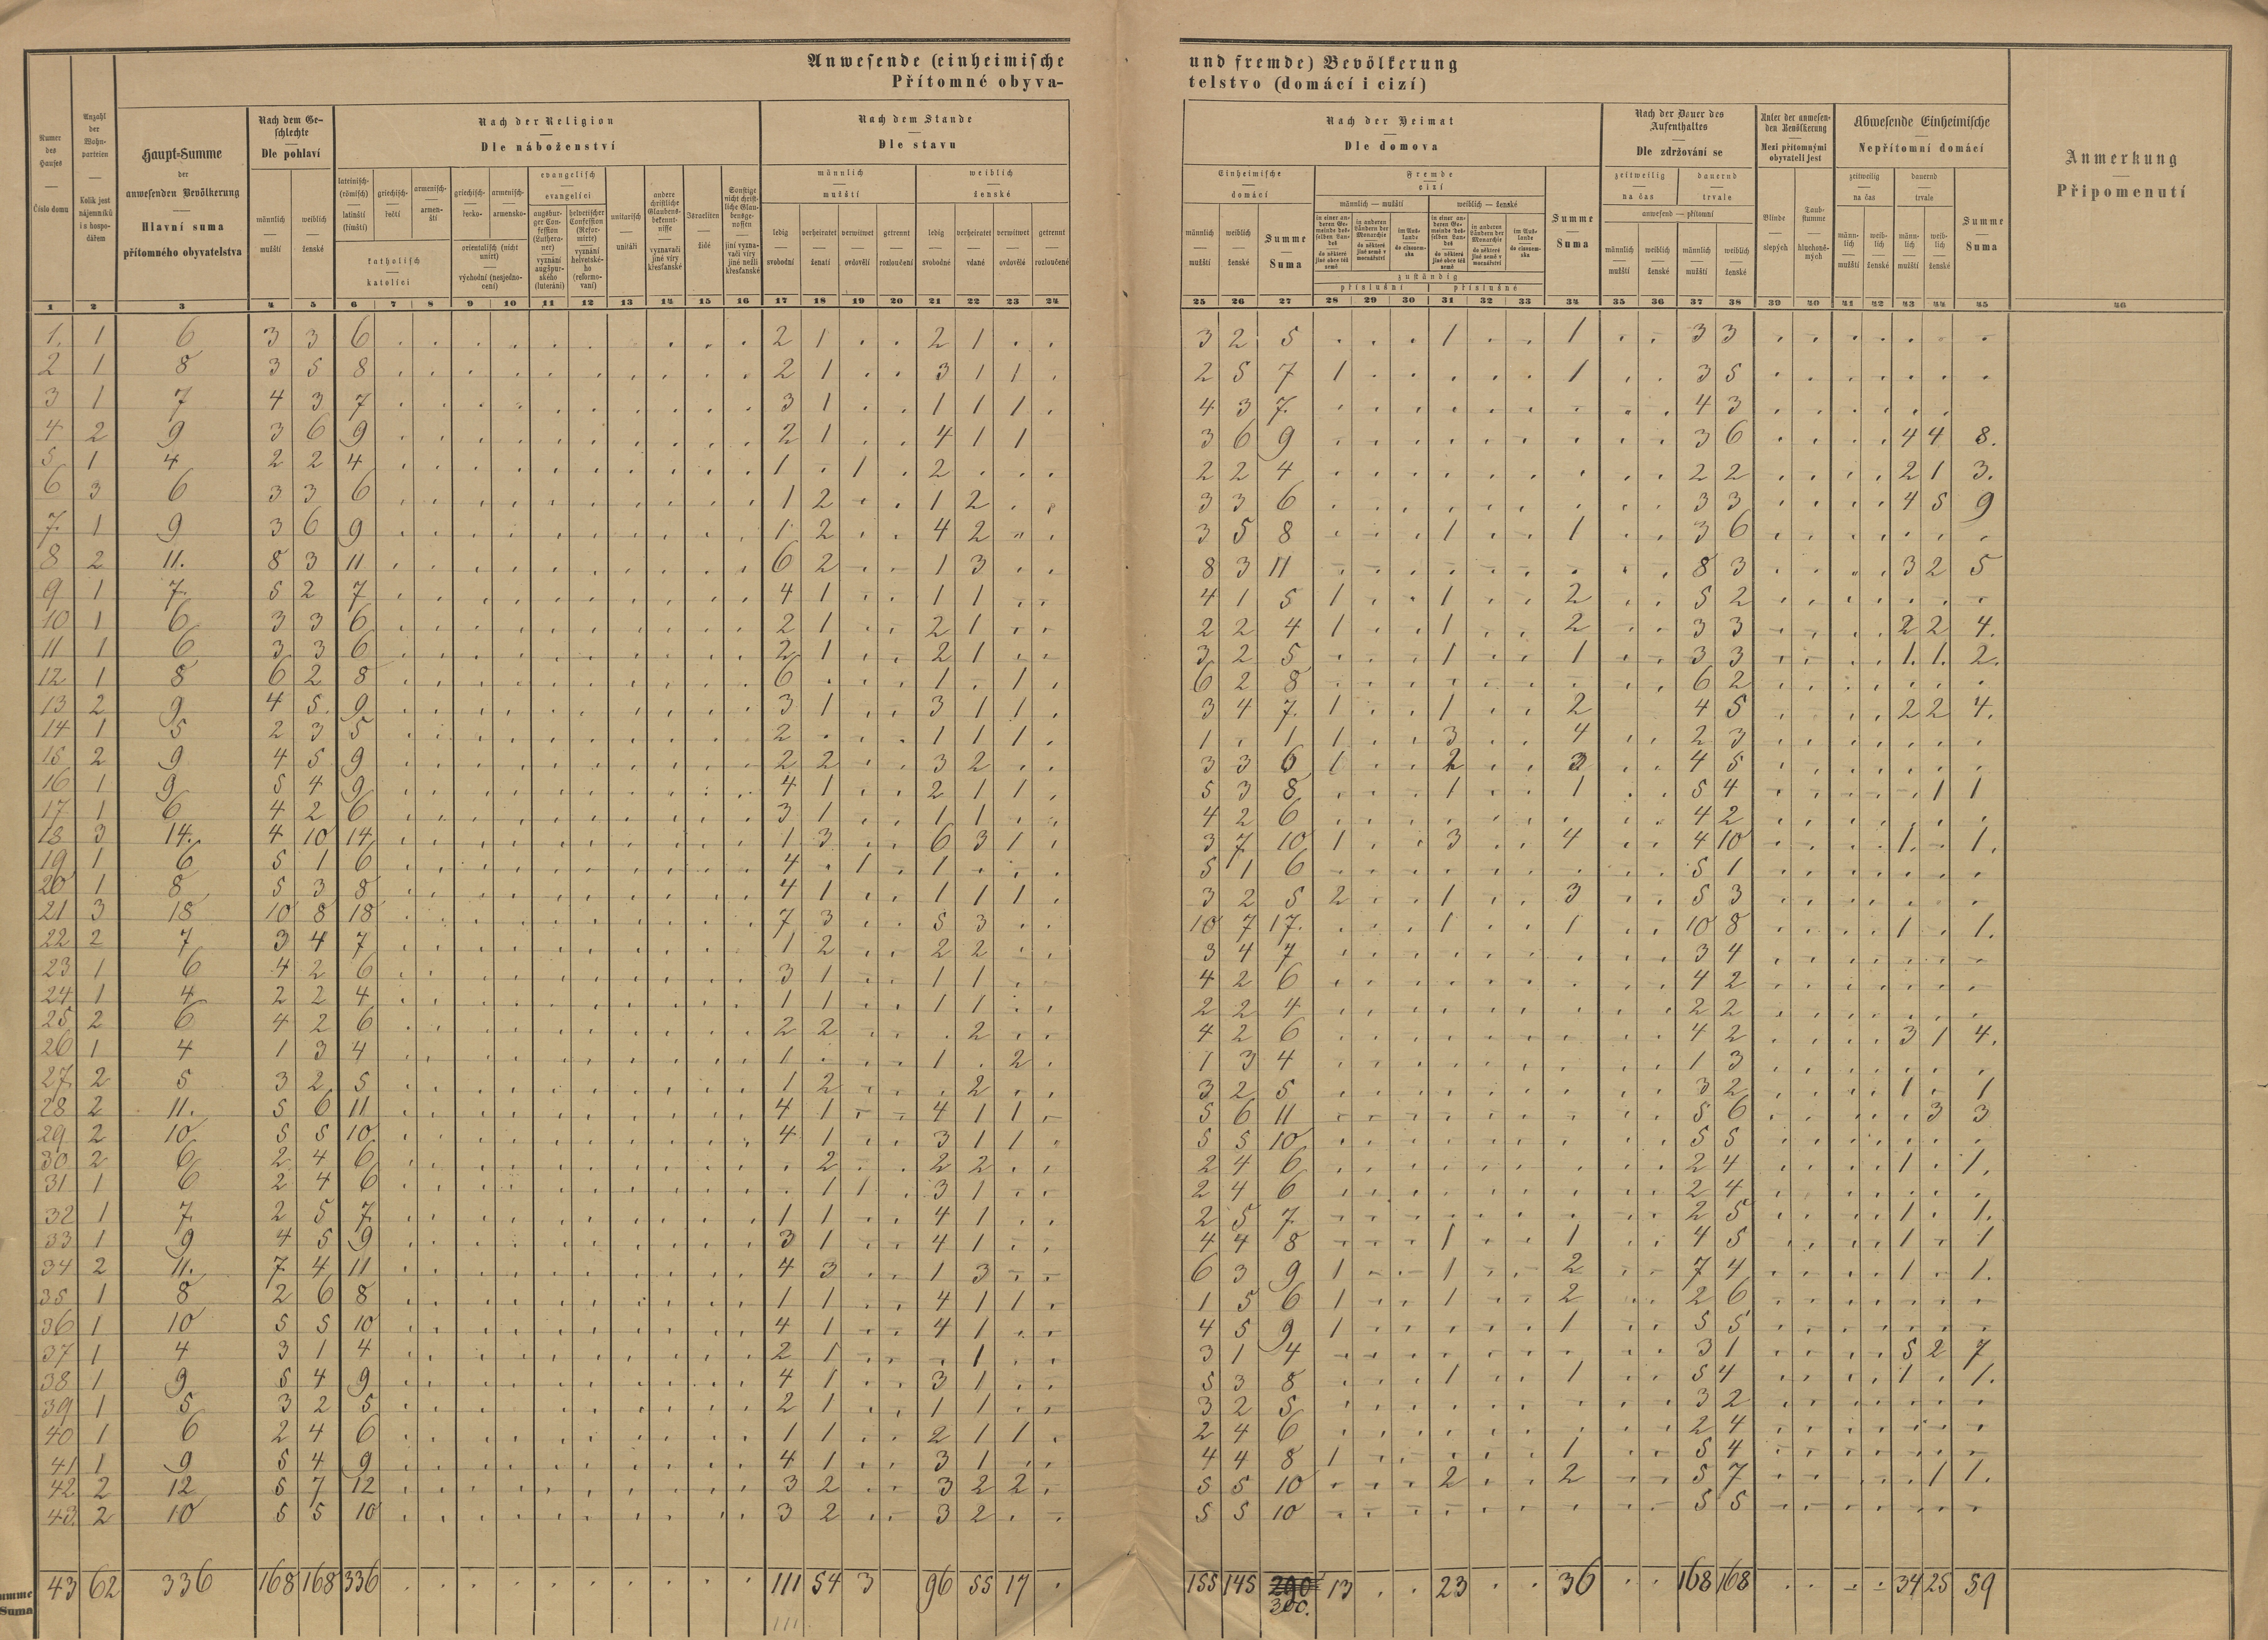 Anwesende (einheimische und fremde) Bevölkerung
Přítomné obyvatelstvo (domácí i cizí)
Numer des Hauses — Číslo domu
Anzahl der Wohnparteien — Kolik jest nájemníků i a hospodářem
Haupt-Summe der anwesenden Bevölkerung — Hlavní suma přítomného obyvatelstva
Nach dem Geschlechte — Dle pohlaví
männlich — mužští
weiblich — ženské
Nach der Religion — Dle náboženství
lateinisch- (römisch) — latinští (římští)
griechisch- — řečtí
armenisch- — armenští
katholisch — katolíci
griechisch- — řecko-
armenisch- — armensko-
orientalisch (nicht unirt) — východní (nesjednocení)
evangelisch — evangelíci
augsburger Confession (Lutheraner) — vyznání augšpurského (luteráni)
helvetischer Confession (Reformirte) — vyznání helvetského (reformovaní)
unitarisch — unitáři
andere christliche Glaubensbekenntnisse — vyznavači jiné víry křesťanské
Israeliten — židé
Sonstige nicht christliche Glaubensgenossen — jiní vyznavači víry jiné nežli křesťanské
Nach dem Stande — Dle stavu
männlich — mužští
ledig — svobodní
verheiratet — ženatí
verwitwet — ovdověli
getrennt — rozloučení
weiblich — ženské
ledig — svobodné
verheiratet — vdané
verwitwet — ovdovělé
getrennt — rozloučené
Nach der Heimat — Dle domova
Einheimische — domácí
männlich — mužští
weiblich — ženské
Summe — Suma
Fremde — cizí
männlich — mužští
weiblich — ženské
in einer anderen Gemeinde desselben Landes — do některé jiné obce též země
in anderen Ländern der Monarchie — do některé jiné země v mocnářství
im Auslande — do cizozemska
in einer anderen Gemeinde desselben Landes — do některé jiné obce též země
in anderen Ländern der Monarchie — do některé jiné země v mocnářství
im Auslande — do cizozemska
zuständig
příslušní příslušné
Summe — Suma
Nach der Dauer des Aufenthaltes — Dle zdržování se
zeitweilig — na čas
dauernd — trvale
anwesend — přítomní
männlich — mužští
weiblich — ženské
männlich — mužští
weiblich — ženské
Unter der anwesenden Bevölkerung — Mezi přítomnými obyvateli jest
Blinde — slepých
Taubstumme — hluchoněmých
Abwesende Einheimische — Nepřítomní domácí
zeitweilig — na čas
dauernd — trvale
männlich — mužští
weiblich — ženské
männlich — mužští
weiblich — ženské
Summe — Suma
Anmerkung — Připomenutí
1 2 3 4 5 6 7 8 9 10 11 12 13 14 15 16 17 18 19 20 21 22 23 24 25 26 27 28 29 30 31 32 33 34 35 36 37 38 39 40 41 42 43 44 45 46
1. 1 6 3 3 6 2 1 . . 2 1 . . 3 2 5 . . . 1 . . 1 . . 3 3
2 1 8 3 5 8 2 1 . . 3 1 1 . 2 5 7 1 . . . . . 1 . . 3 5
3 1 7 4 3 7 3 1 . . 1 1 1 . 4 3 7. . . . . . . . . . 4 3
4 2 9 3 6 9 2 1 . . 4 1 1 3 6 9 . . . . . . . . . 3 6 . . . . 4 4 8.
5 1 4 2 2 4 1 . 1 . 2 . . . 2 2 4 . . . . . . . . . 2 2 . . . . 2 1 3.
6 3 6 3 3 6 1 2 . . 1 2 . . 3 3 6 . . . . . . . . . 3 3 . . . . 4 5 9
7. 1 9 3 6 9 1 2 . . 4 2 . . 3 5 8 . . . 1 . . 1 . . 3 6
8 2 11. 8 3 11 6 2 . . 1 3 . . 8 3 11 . . . . . . . . . 8 3 . . . . 3 2 5
9 1 7. 5 2 7 4 1 . . 1 1 . . 4 1 5 1 . . 1 . . 2 . . 5 2
10 1 6 3 3 6 2 1 . . 2 1 . . 2 2 4 1 . . 1 . . 2 . . 3 3 . . . . 2 2 4.
11 1 6 3 3 6 2 1 . . 2 1 . . 3 2 5 . . . 1 . . 1 . . 3 3 . . . . 1. 1. 2.
12 1 8 6 2 8 6 . . . 1 . 1 . 6 2 8 . . . . . . . . . 6 2
13 2 9 4 5. 9 3 1 . . 3 1 1 . 3 4 7. 1 . . 1 . . 2 4 5 . . . . 2 2 4.
14 1 5 2 3 5 2 . . . 1 1 1 . 1 . 1 1 . . 3 . . 4 . . 2 3
15 2 9 4 5 9 2 2 . . 3 2 . . 3 3 6 1 . . 2 . . 3 . . 4 5
16 1 9 5 4 9 4 1 . . 2 1 1 . 5 3 8 . . . 1 . . 1 . . 5 4 . . . . . 1 1
17 1 6 4 2 6 3 1 . . 1 1 . . 4 2 6 . . . . . . . . . 4 2
18 3 14. 4 10 14 1 3 . . 6 3 1 . 3 7 10 1 . . 3 . . 4 . . 4 10 . . . . 1. . 1.
19 1 6 5 1 6 4 . 1 . 1 . . . 5 1 6 . . . . . . . . . 5 1
20 1 8 5 3 8 4 1 . . 1 1 1 . 3 2 5 2 . . 1 . . 3 . . 5 3
21 3 18 10 8 18 7 3 . . 5 3 . . 10 7 17. . . . 1 . . 1 . . 10 8 . . . . 1 . 1.
22 2 7 3 4 7 1 2 . . 2 2 . . 3 4 7 . . . . . . . . . 3 4
23 1 6 4 2 6 3 1 . . 1 1 . . 4 2 6 . . . . . . . . . 4 2
24 1 4 2 2 4 1 1 . . 1 1 . . 2 2 4 . . . . . . . . . 2 2
25 2 6 4 2 6 2 2 . . . 2 . . 4 2 6 . . . . . . . . . 4 2 . . . . 3 1 4.
26 1 4 1 3 4 1 . . . 1 . 2 . 1 3 4 . . . . . . . . . 1 3
27 2 5 3 2 5 1 2 . . . 2 . . 3 2 5 . . . . . . . . . 3 2 . . . . 1 . 1
28 2 11. 5 6 11 4 1 . . 4 1 1 . 5 6 11 . . . . . . . . . 5 6 . . . . . 3 3
29 2 10 5 5 10 4 1 . . 3 1 1 . 5 5 10 . . . . . . . . . 5 5
30 2 6 2 4 6 . 2 . . 2 2 . . 2 4 6 . . . . . . . . . 2 4 . . . . 1 . 1.
31 1 6 2 4 6 . 1 1 . 3 1 . . 2 4 6 . . . . . . . . . 2 4
32 1 7 2 5 7 1 1 . . 4 1 . . 2 5 7 . . . . . . . . . 2 5 . . . . 1 . 1.
33 1 9 4 5 9 3 1 . . 4 1 . . 4 4 8 . . . 1 . . 1 . . 4 5 . . . . 1 . 1
34 2 11. 7 4 11 4 3 . . 1 3 . . 6 3 9 1 . . 1 . . 2 . . 7 4 . . . . 1 . 1.
35 1 8 2 6 8 1 1 . . 4 1 1 . 1 5 6 1 . . 1 . . 2 . . 2 6
36 1 10 5 5 10 4 1 . . 4 1 . . 4 5 9 1 . . . . . 1 . . 5 5
37 1 4 3 1 4 2 1 . . . 1 . . 3 1 4 . . . . . . . . . 3 1 . . . . 5 2 7
38 1 9 5 4 9 4 1 . . 3 1 . . 5 3 8 . . . 1 . . 1 . . 5 4 . . . . 1 . 1.
39 1 5 3 2 5 2 1 . . 1 1 . . 3 2 5 . . . . . . . . . 3 2
40 1 6 2 4 6 1 1 . . 2 1 1 . 2 4 6 . . . . . . . . . 2 4
41 1 9 5 4 9 4 1 . . 3 1 . . 4 4 8 1 . . . . . 1 . . 5 4
42 2 12 5 7 12 3 2 . . 3 2 2 . 5 5 10 . . . 2 . . 2 . . 5 7 . . . . . 1 1.
43. 2 10 5 5 10 3 2 . . 3 2 . . 5 5 10 . . . . . . . . . 5 5
Suma 43 62 336 168 168 336 . . . . . . . . . . 111 54 3 96 55 17 . 155 145 290 13 . . 23 . . 36 168 168 . . . . 34 25 59
111 300.